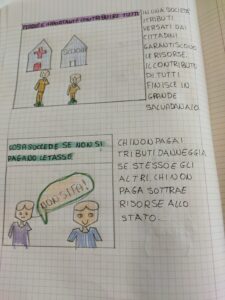 PERCHÉ È IMPORTANTE CONTRIBUIRE TUTTI
SCUOLA
IN UNA SOCIETÀ
I TRIBUTI
VERSATI DAI
CITTADINI
GARANTISCONO
LE RISORSE.
IL CONTRIBUTO
DI TUTTI
FINISCE IN
GRANDE
SALVADANAIO.
COSA SUCCEDE SE NON SI
PAGANO LE TASSE
NON SI FA!
CHI NON PAGA I
TRIBUTI DANNEGGIA
SE STESSO E GLI
ALTRI. CHI NON
PAGA SOTTRAE
RISORSE ALLO
STATO.